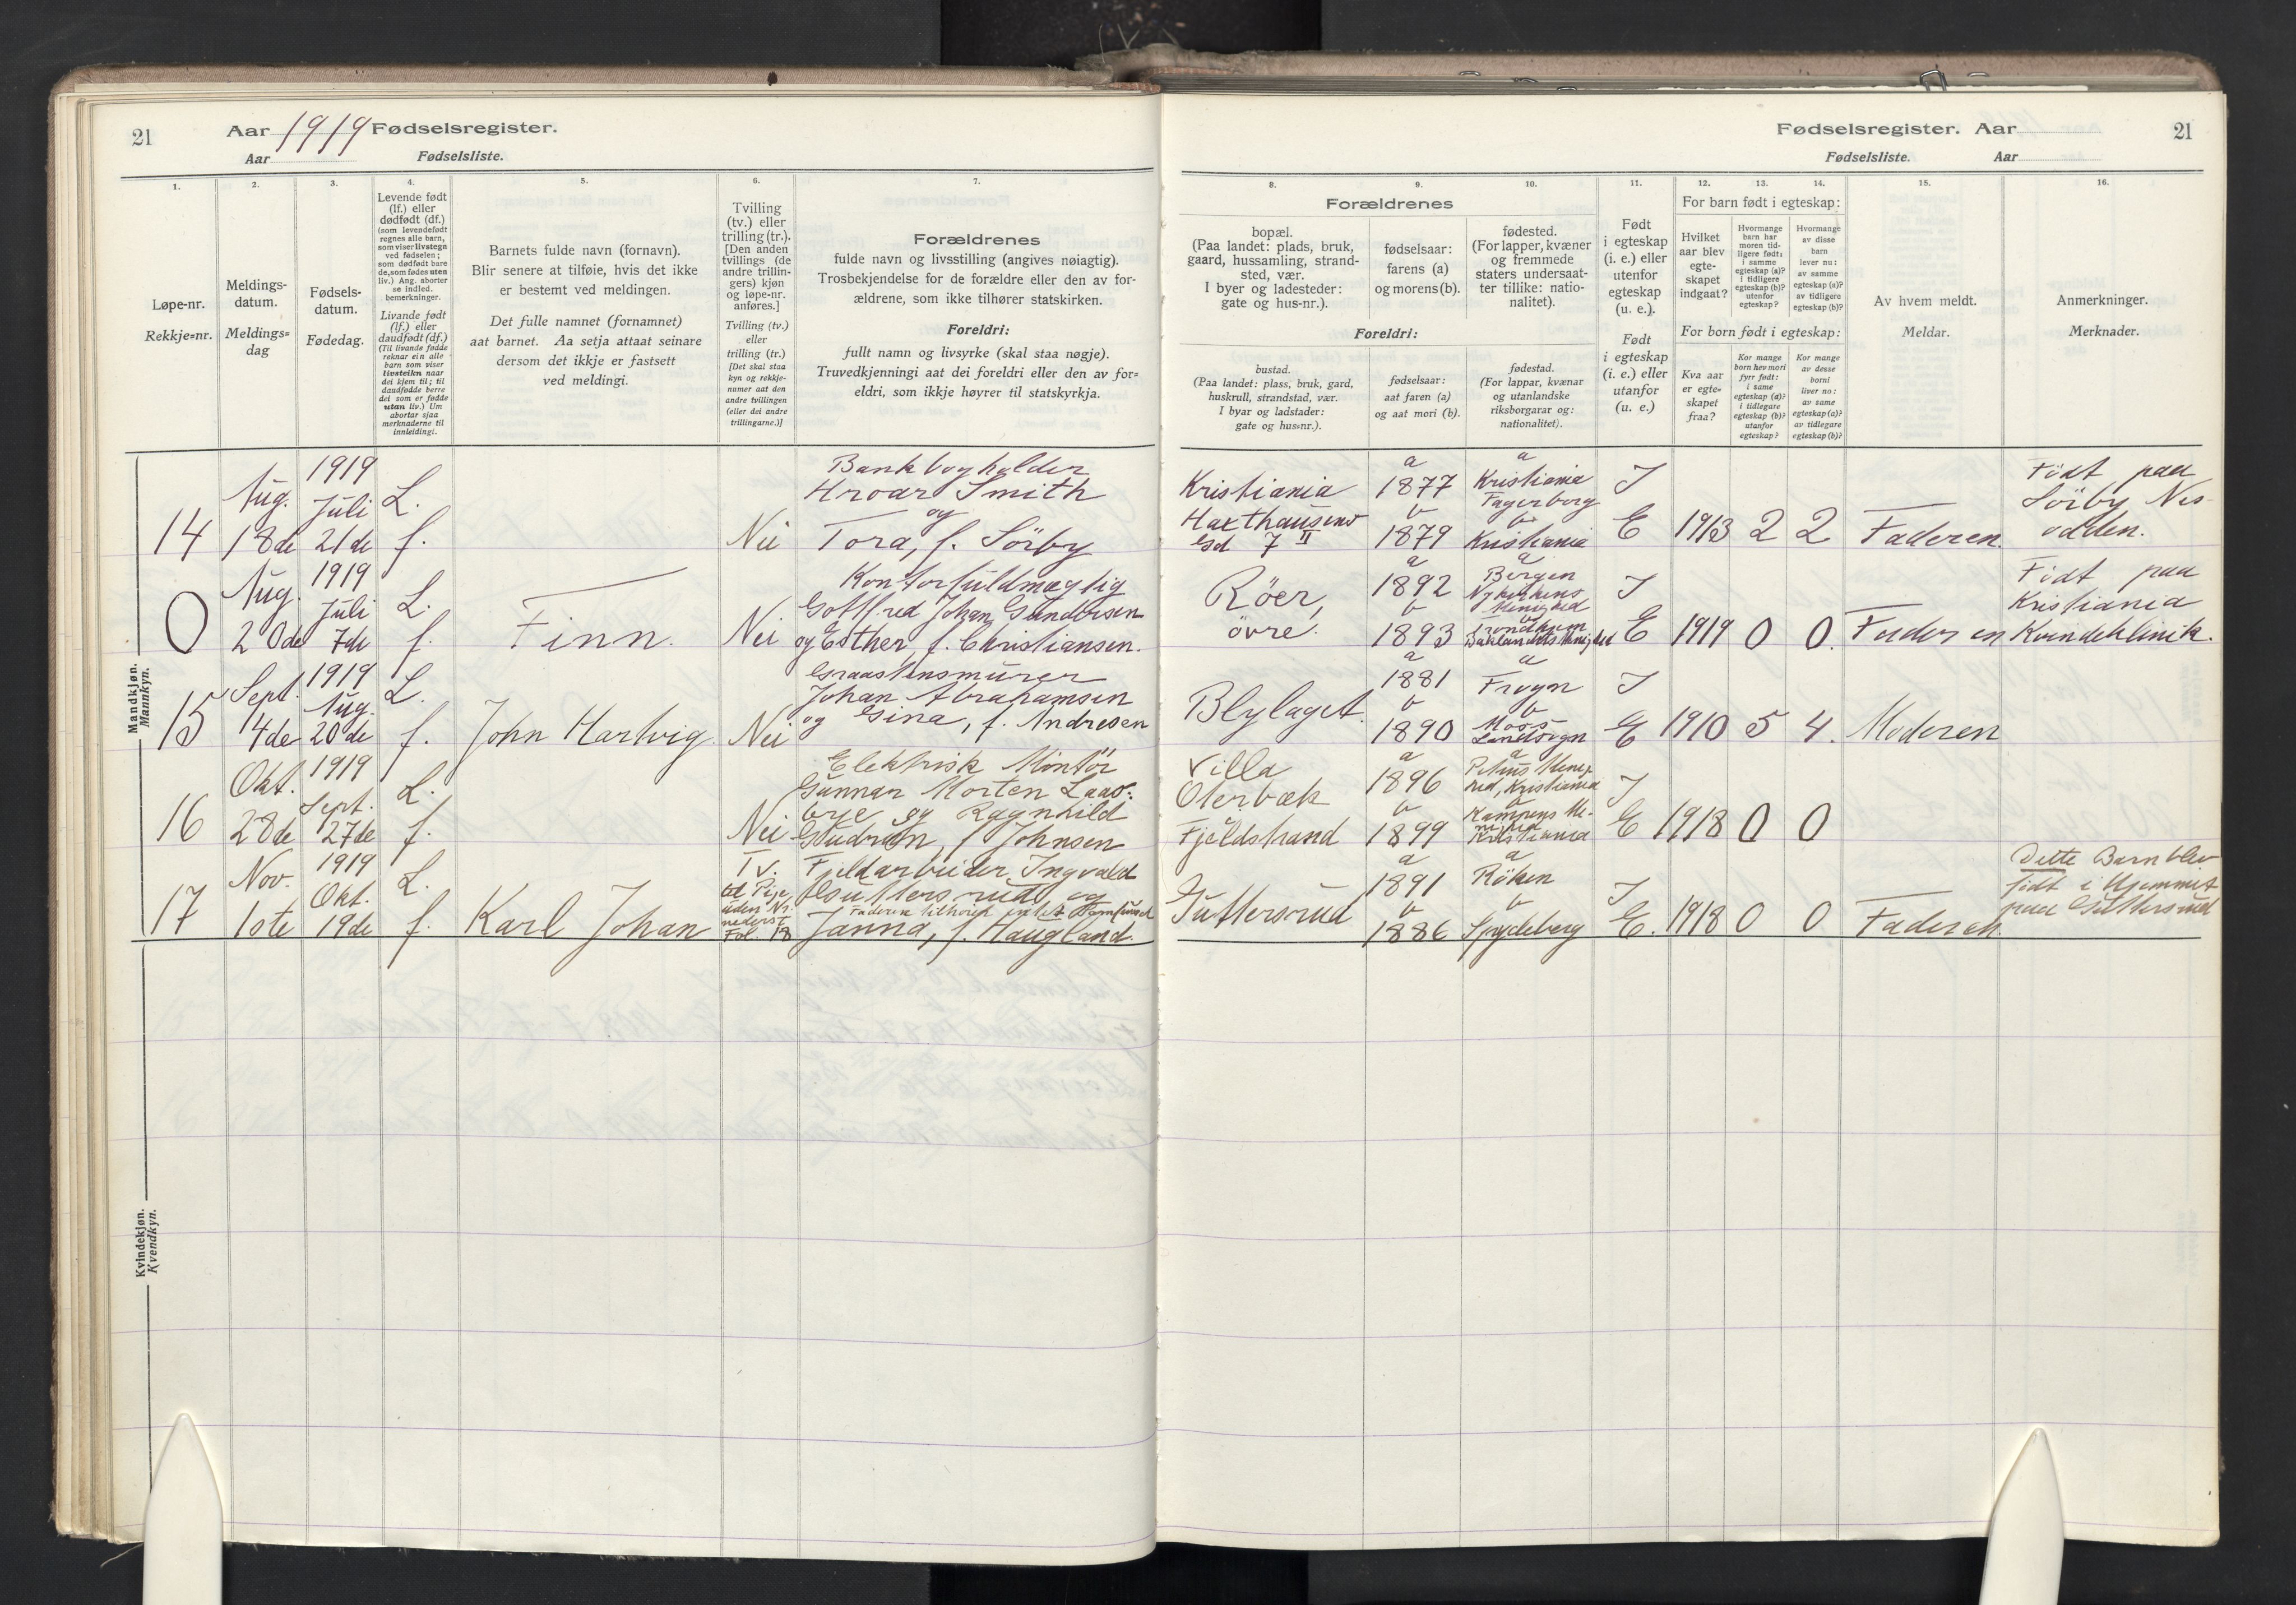 21
Aar 1919 Fødselsregister.
Aar Fødselsliste.
1.
Løpe-nr.
Rekkje=nr.
2.
Meldings-
datum.
Meldings=
dag
3.
Fødsels-
datum.
Fødedag.
4.
Levende født
(lf.) eller
dødfødt (df.)
(som levendefødt
regnes alle barn,
som viser livstegn
ved fødselen;
som dødfødt bare
de, som fødes uten
liv.) Ang. aborter
se indled.
bemerkninger.
Livande født
(lf.) eller
daudfødt (df.)
(Til livande fødde
reknar ein alle
barn som viser
livsteikn naar
dei kjem til; til
daudfødde berre
dei som er fødde
utan liv.) Um
abortar sjaa
merknaderne til
innleidingi.
5.
Barnets fulde navn (fornavn).
Blir senere at tilføie, hvis det ikke
er bestemt ved meldingen.
Det fulle namnet (fornamnet)
aat barnet. Aa setja attaat seinare
dersom det ikkje er fastsett
ved meldingi.
6.
Tvilling
(tv.) eller
trilling (tr.).
[Den anden
tvillings (de
andre trillin-
gers) kjøn
og løpe-nr.
anføres.]
Tvilling (tv.)
eller
trilling (tr.)
[Det skal staa
kyn og rekkje-
numer aat den
andre tvillingen
(eller dei andre
trillingarne.)]
7.
Forældrenes
fulde navn og livsstilling (angives nøiagtig).
Trosbekjendelse for de forældre eller den av for-
ældrene, som ikke tilhører statskirken.
Foreldri:
fullt namn og livsyrke (skal staa nøgje).
Truvedkjenningi aat dei foreldri eller den av for=
eldri, som ikkje høyrer til statskyrkja.
Fødselsregister. Aar
21
Fødselsliste. Aar
8.
Forældrenes
bopæl.
(Paa landet: plads, bruk,
gaard, hussamling, strand-
sted, vær.
I byer og ladesteder:
gate og hus-nr.).
Foreldri:
bustad.
(Paa landet: plass, bruk, gard,
huskrull, strandstad, vær.
I byar og ladstader:
gate og hus=nr.).
9.
fødselsaar:
farens (a)
og morens (b).
fødselsaar:
aat faren (a)
og aat mori (b).
10.
fødested.
(For lapper, kvæner
og fremmede
staters undersaat-
ter tillike: natio-
nalitet).
fødestad.
(For lappar, kvænar
og utanlandske
riksborgarar og:
nationalitet).
11.
Født
i egteskap
(i. e.) eller
utenfor
egteskap
(u. e.).
Født
i egteskap
(i. e.) eller
utanfor
(u. e.)
12.
13.
14.
For barn født i egteskap:
Hvilket
aar blev
egte-
skapet
indgaat?
Hvormange
barn har
moren tid-
ligere født:
i samme
egteskap (a)?
i tidligere
egteskap (b)?
utenfor
egteskap?
Hvormange
av disse
barn
lever nu:
av samme
egteskap (a)?
av tidligere
egteskap (b)?
For born født i egteskap:
Kva aar
er egte=
skapet
fraa?
Kor mange
born hev mori
fyrr født:
i same
egteskap (a)?
i tidlegare
egteskap (b)?
utanfor
egteskap?
Kor mange
av desse
borni
liver no:
av same
egteskap (a)?
av tidlegare
egteskap (b)?
15.
Av hvem meldt.
Meldar.
16.
Anmerkninger.
Merknader.
Mandkjøn.
Mannkyn.
14
Aug.
18de
1919
Juli
21de
L.
f.
Nei
Bankbogholder
Hroar Smith
og
Tora, f. Sörby
Kristiania
Haxthausens
Gd 7 II
a
1877
b
1879
a
Kristiania
Fagerborg
b
Kristiania
I
E
1913
2
2
Faderen.
Födt paa
Sörby Nes-
odden.
0
Aug.
20de
1919
Juli
7de
L.
f.
Finn.
Nei
Kontorfuldmægtig
Gottfred Johan Gundersen
og Esther, f. Christiansen.
Röer,
övre.
a
1892
b
1893
a
Bergen
Nykirkens
Menighed
b
Trondhjem
Baklandets Menighed
I
E
1919
0
0.
Faderen
Födt paa
Kristiania
Kvindeklinik.
15
Sept.
4de
1919
Aug.
20de
L.
f.
John Hartvig.
Nei
Graastensmurer
Johan Abrahamsen
og Gina, f. Andresen
Blylaget.
a
1881
b
1890
a
Frogn
b
Moss
Landsogn
I
E
1910
5
4.
Moderen
16
Okt.
28de
1919
Sept.
27de
L.
f.
Nei
Elektrisk Montör
Gunnar Morten Laas-
bye og Ragnhild
Gudrun, f Johnsen
Villa
Oterbæk
Fjeldstrand
a
1896
b
1899
a
Petrus Menig-
hed, Kristiania
b
Kampens Me-
nighed
Kristiania
I
E
1918
0
0
17
Nov.
1ste
1919
Okt.
19de
L.
f.
Karl Johan
Tv.
til Pige
uden Nr.
nederst
Fol. 18
Fjeldarbeider Ingvald
Guttersrud og
Faderen tilhører intet Samfund
Janna, f. Haugland.
Guttersrud
a
1891
b
1886
a
Röken
b
Spydeberg
I
E.
1918
0
0
Faderen.
Dette Barn blev
födt i Hjemmet
paa Guttersrud
Kvindekjøn.
Kvendkyn.